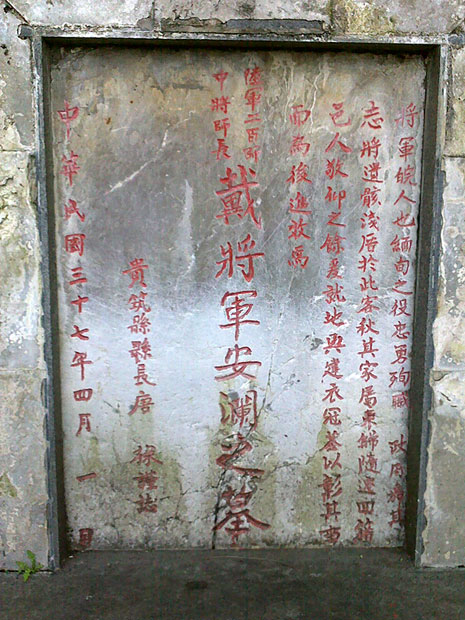 將軍皖人也緬甸之役忠勇殉職 政府
志將遺骸淺厝於此客秋其家屬東歸隨運回籍
邑人敬仰之餘爰就地興建衣冠墓以彰其
而為後進效焉
陸軍二百師
中將師長
戴將軍安瀾之墓
貴筑縣縣長唐
中華民國三十七年四月 一 日